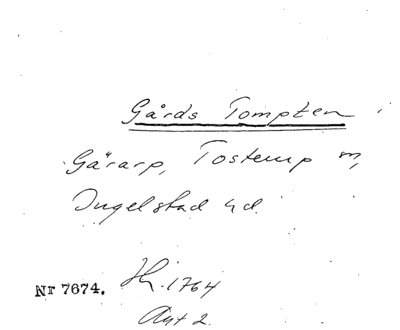 Gårds Tompten
Gärarp, Tosterup m,
Ingelstad hd.
Nr 7674. Hr. 1764
Akt 2.